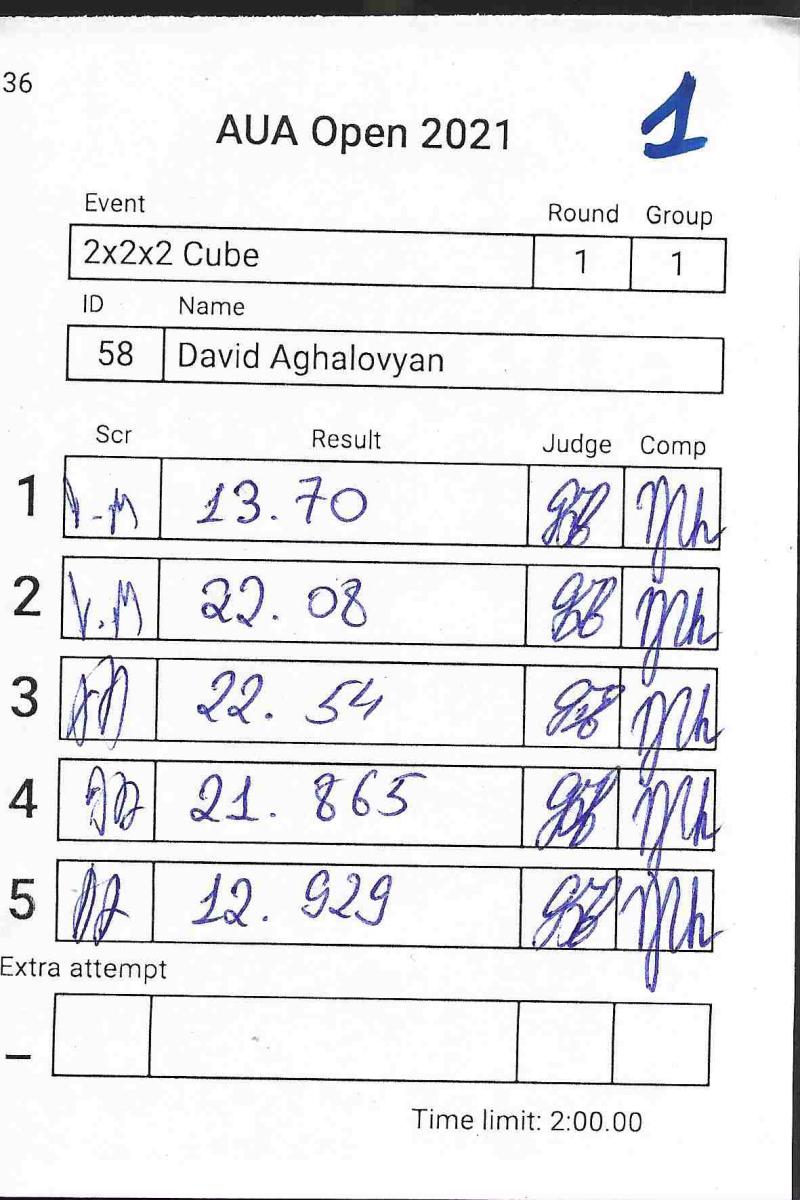 36
1
AUA Open 2021
Event Round Group
2x2x2 Cube 1 1
ID Name
58 David Aghalovyan
Scr Result Judge Comp
1 13.70
2 V.M 22.08
3 22.54
4 21.865
5 12.929
Extra attempt
_
Time limit: 2:00.00